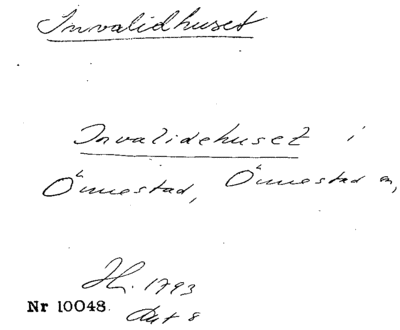 Invalidhuset
Invalidehuset i
Önnestad, Önnestad sn,
Hl. 1793
Nr 10048.
Akt 8